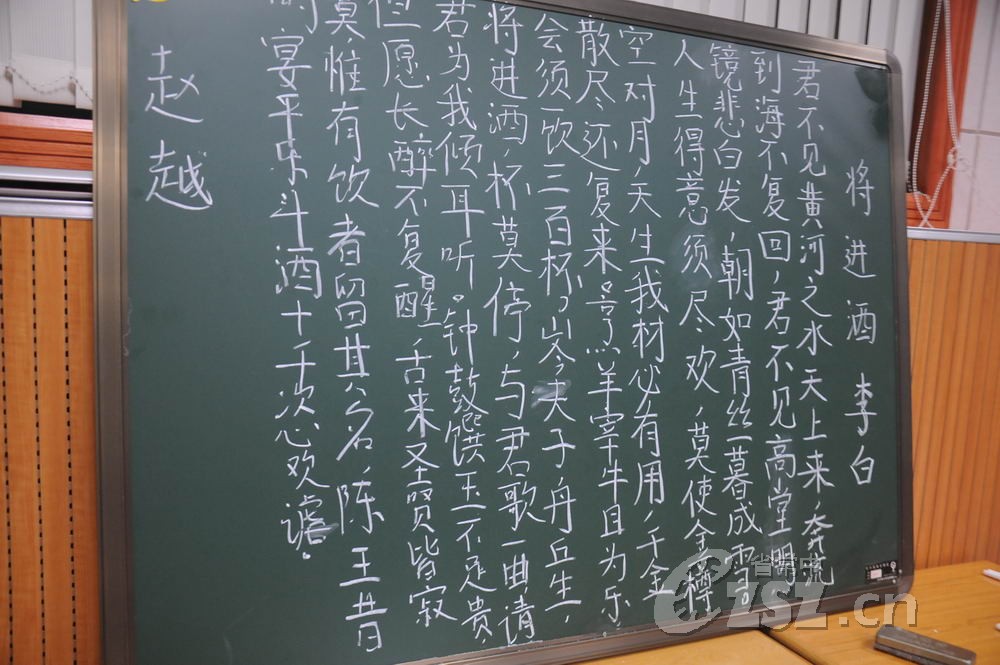 将进酒 李白
君不见黄河之水天上来,奔流
到海不复回,君不见高堂明
镜悲白发,朝如青丝暮成雪。
人生得意须尽欢,莫使金樽
空对月,天生我材必有用,千金
散尽还复来。烹羊宰牛且为乐,
会须一饮三百杯。岑夫子舟丘生,
将进酒,杯莫停,与君歌一曲请
君为我倾耳听。钟鼓馔玉不足贵
但愿长醉不复醒,古来圣贤皆寂
寞惟有饮者留其名,陈王昔
宴平乐斗酒十千恣欢谑。
赵越
ezsz.cn